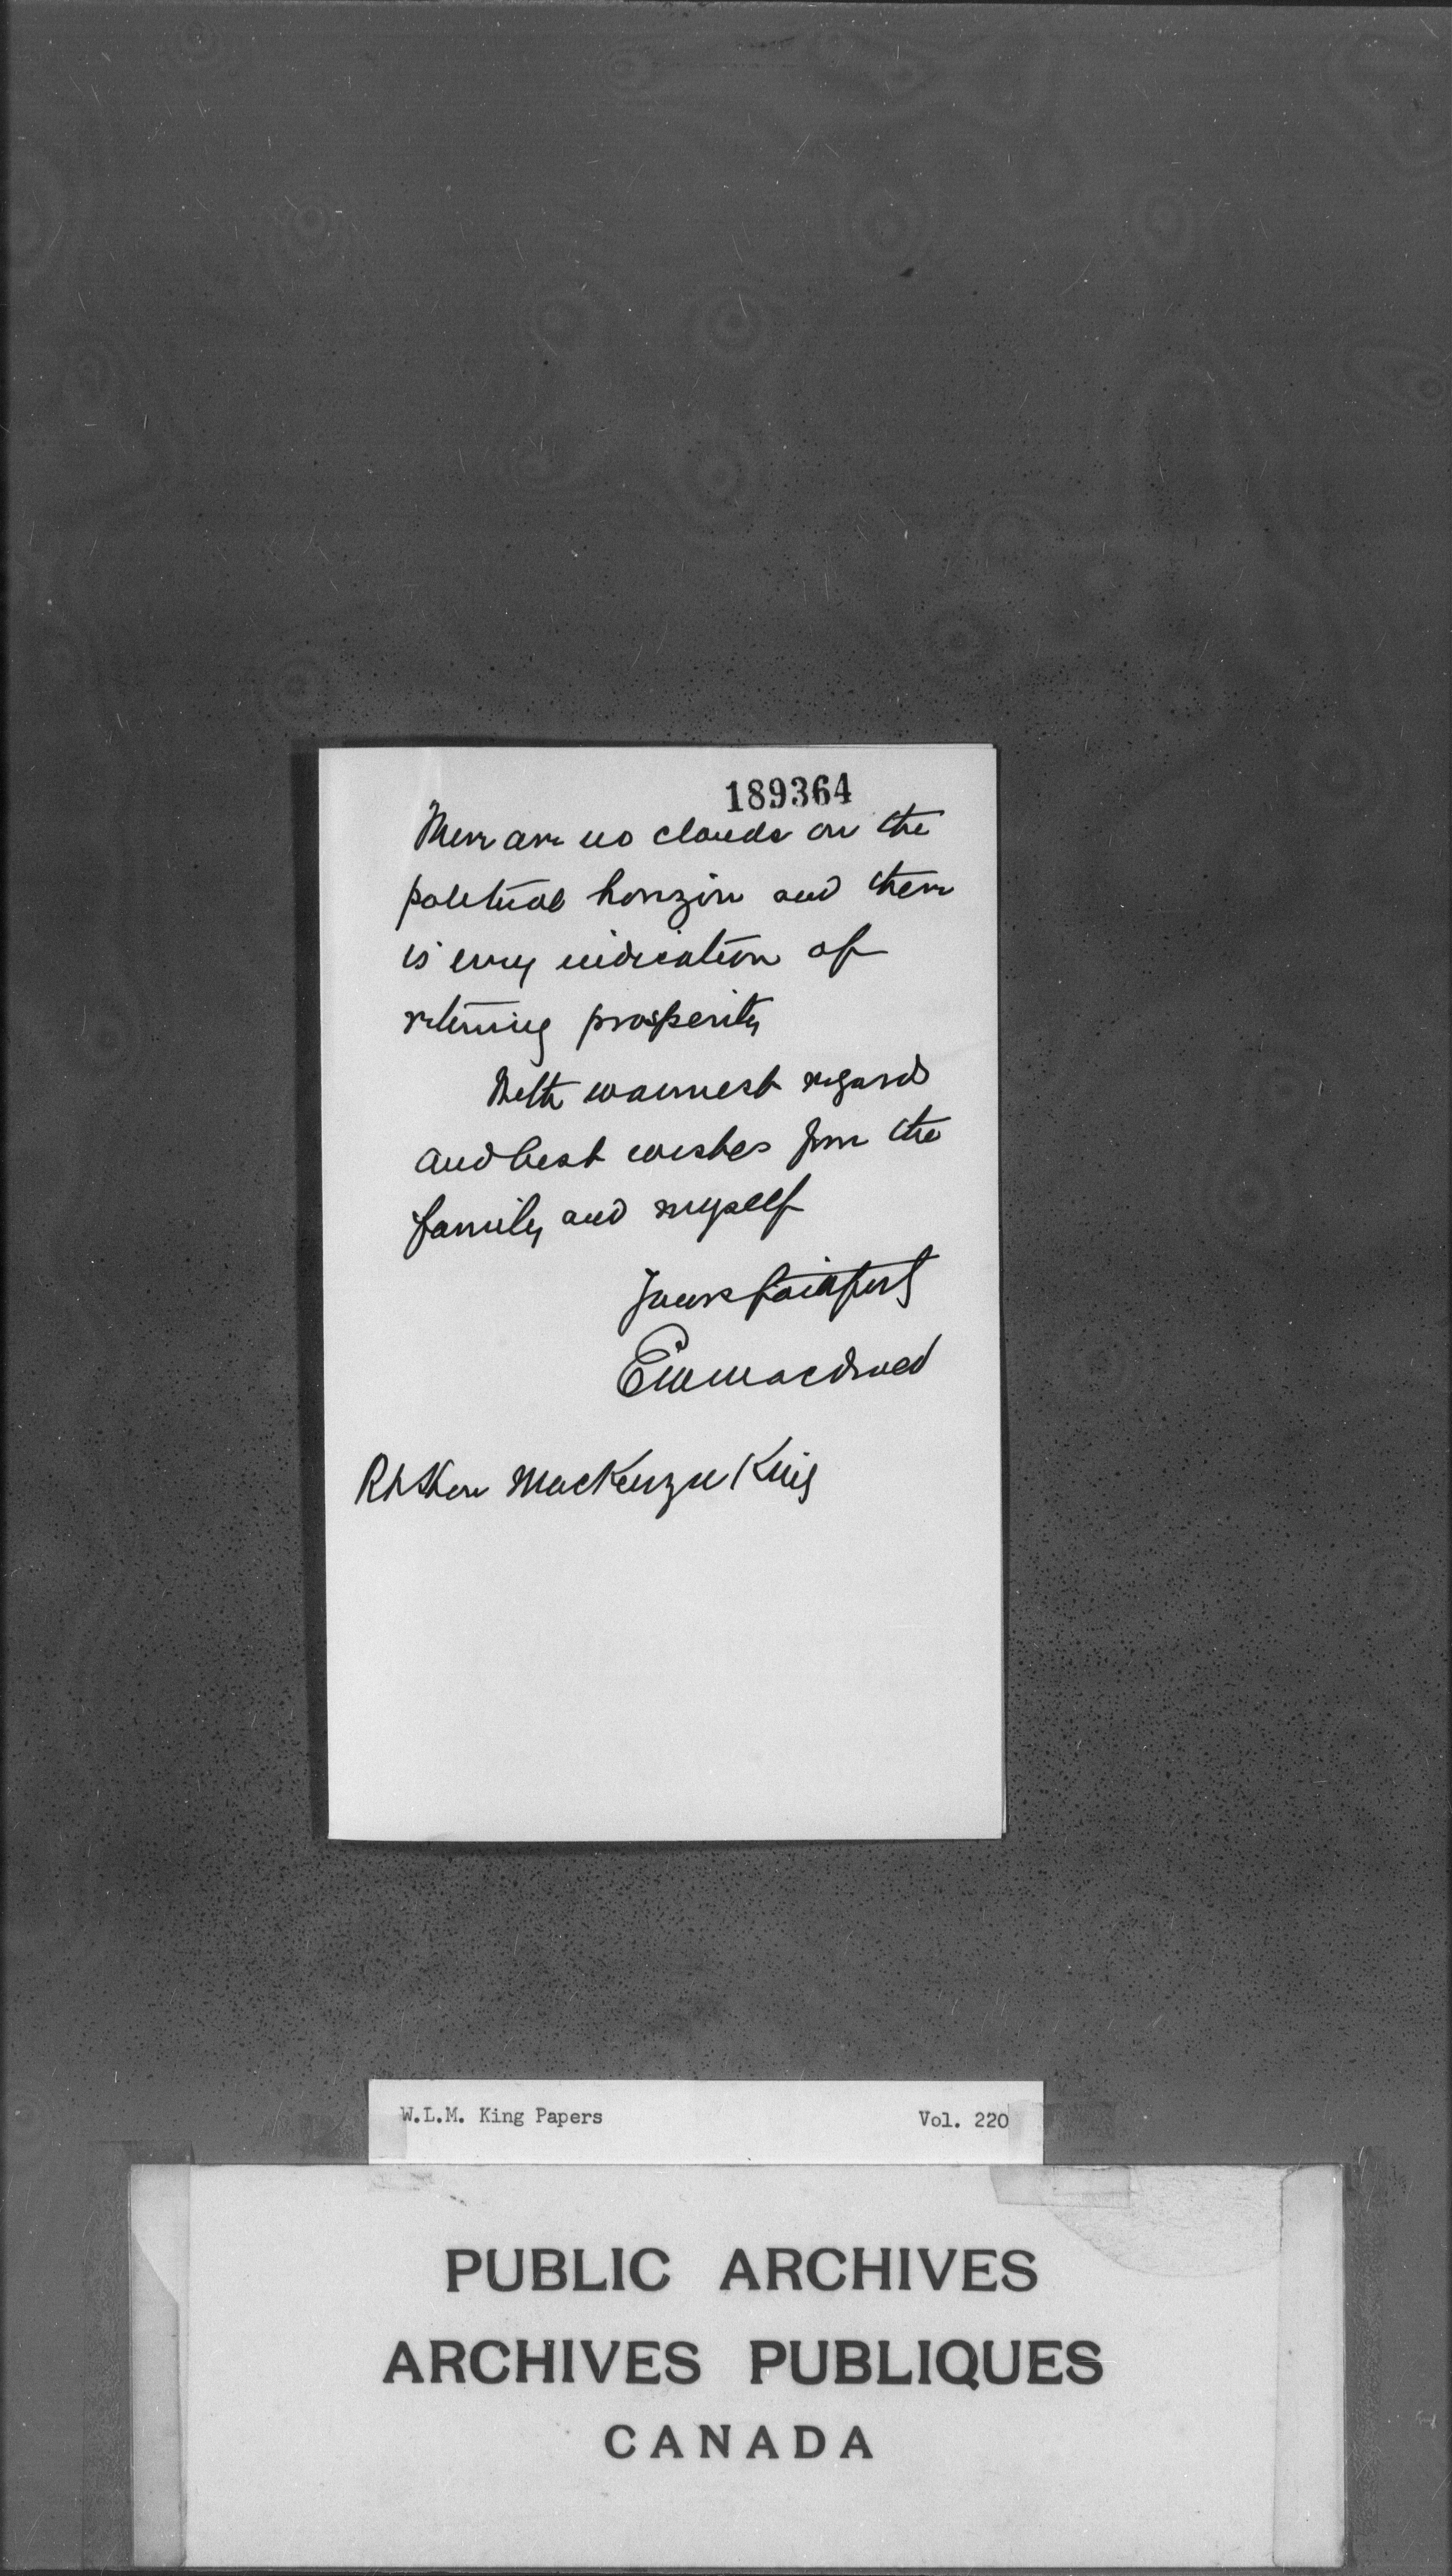 189364
There are no clouds on the
political horizon and there
is every indication of
returning prosperity
With warmest regards
and best wishes from the
family and myself
Yours faithfully
EMMacdonald
Rt Hon MacKenzie King
W.L.M. King Papers Vol. 220
PUBLIC ARCHIVES
ARCHIVES PUBLIQUES
CANADA